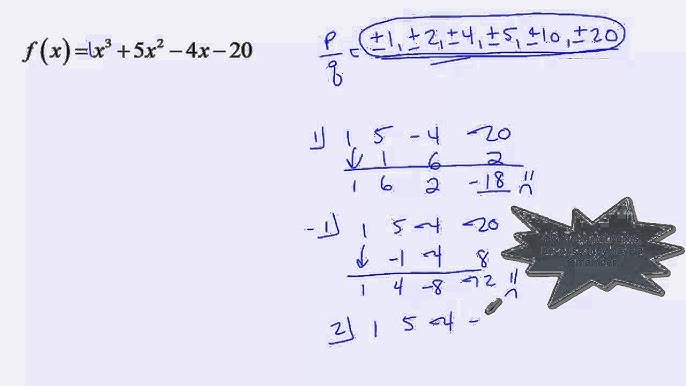 f(x) = 1x³ + 5x² − 4x − 20
p/q = ±1, ±2, ±4, ±5, ±10, ±20
1) 1 5 -4 -20
↓ 1 6 2
1 6 2 -18
-1) 1 5 -4 -20
↓ -1 -4 8
1 4 -8 -12
2) 1 5 -4 -